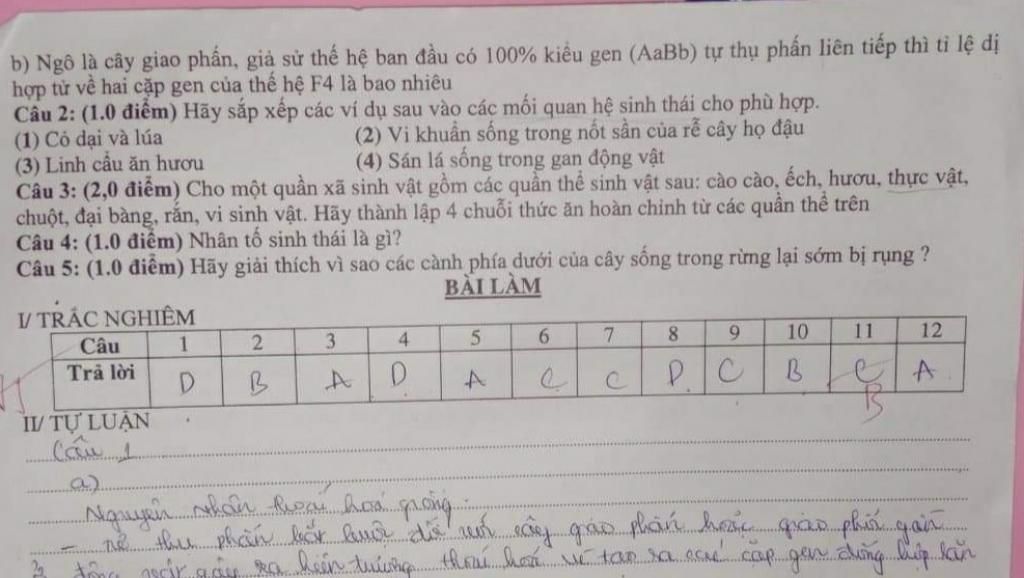 b) Ngô là cây giao phấn, giả sử thế hệ ban đầu có 100% kiểu gen (AaBb) tự thụ phấn liên tiếp thì tỉ lệ dị
hợp tử về hai cặp gen của thế hệ F4 là bao nhiêu
Câu 2: (1.0 điểm) Hãy sắp xếp các ví dụ sau vào các mối quan hệ sinh thái cho phù hợp.
(1) Cỏ dại và lúa (2) Vi khuẩn sống trong nốt sần của rễ cây họ đậu
(3) Linh cẩu ăn hươu (4) Sán lá sống trong gan động vật
Câu 3: (2,0 điểm) Cho một quần xã sinh vật gồm các quần thể sinh vật sau: cào cào, ếch, hươu, thực vật,
chuột, đại bàng, rắn, vi sinh vật. Hãy thành lập 4 chuỗi thức ăn hoàn chỉnh từ các quần thể trên
Câu 4: (1.0 điểm) Nhân tố sinh thái là gì?
Câu 5: (1.0 điểm) Hãy giải thích vì sao các cành phía dưới của cây sống trong rừng lại sớm bị rụng ?
BÀI LÀM
I/ TRẮC NGHIỆM
Câu 1 2 3 4 5 6 7 8 9 10 11 12
Trả lời D B A D A C C D C B C A
B
II/ TỰ LUẬN
Câu 1
a)
Nguyên nhân thoái hoá giống
- thụ phấn bắt buộc cây giao phấn hoặc giao phối gần
ra hiện tượng thoái hoá vì tạo ra các cặp gen đồng hợp lặn